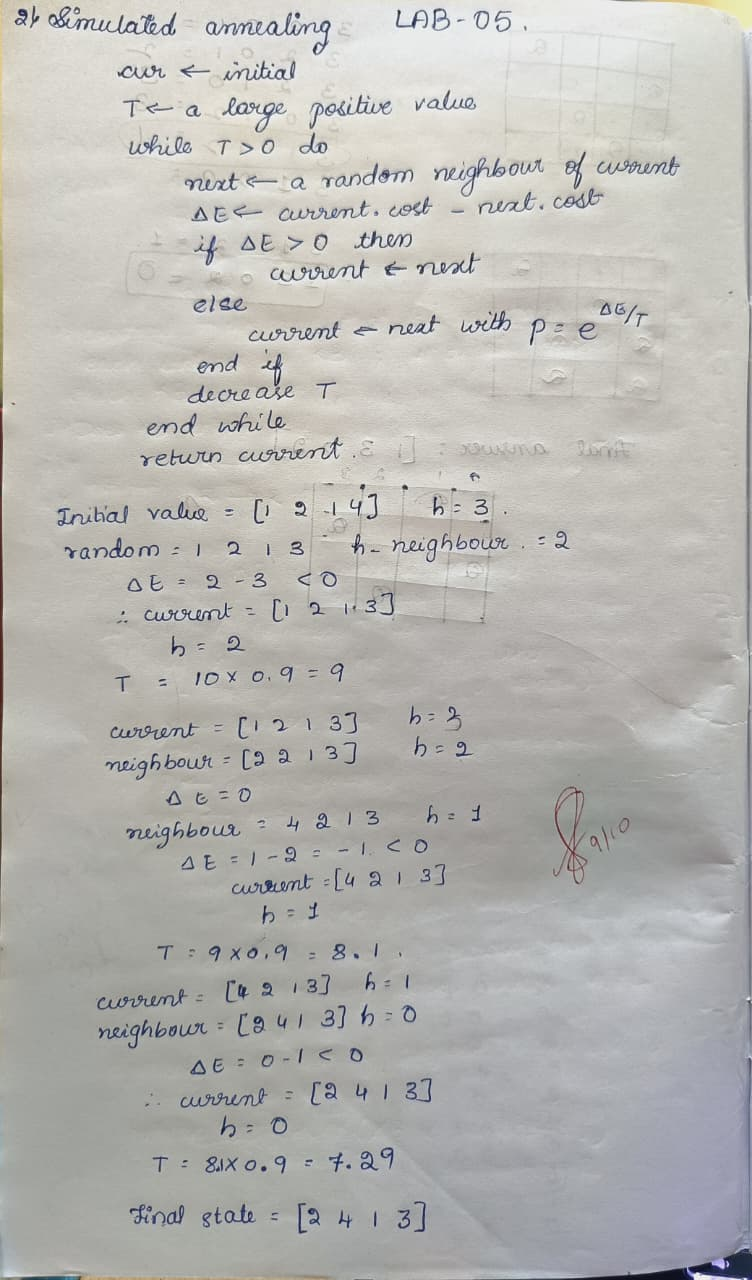 2) Simulated annealing LAB-05.
cur ← initial
T ← a large positive value
while T > 0 do
next ← a random neighbour of current
ΔE ← current.cost - next.cost
if ΔE > 0 then
current ← next
else
current ← next with p = e^ΔE/T
end if
decrease T
end while
return current.
Initial value = [1 2 1 4] h = 3.
random = 1 2 1 3 h- neighbour. = 2
ΔE = 2 - 3 < 0
∴ current = [1 2 1 3]
h = 2
T = 10 x 0.9 = 9
current = [1 2 1 3] h = 2
neighbour = [2 2 1 3] h = 2
ΔE = 0
neighbour = 4 2 1 3 h = 1
ΔE = 1 - 2 = -1 < 0
current = [4 2 1 3]
h = 1
9/10
T = 9 x 0.9 = 8.1.
current = [4 2 1 3] h = 1
neighbour = [2 4 1 3] h = 0
ΔE = 0 - 1 < 0
∴ current = [2 4 1 3]
h = 0
T = 8.1 x 0.9 = 7.29
Final state = [2 4 1 3]